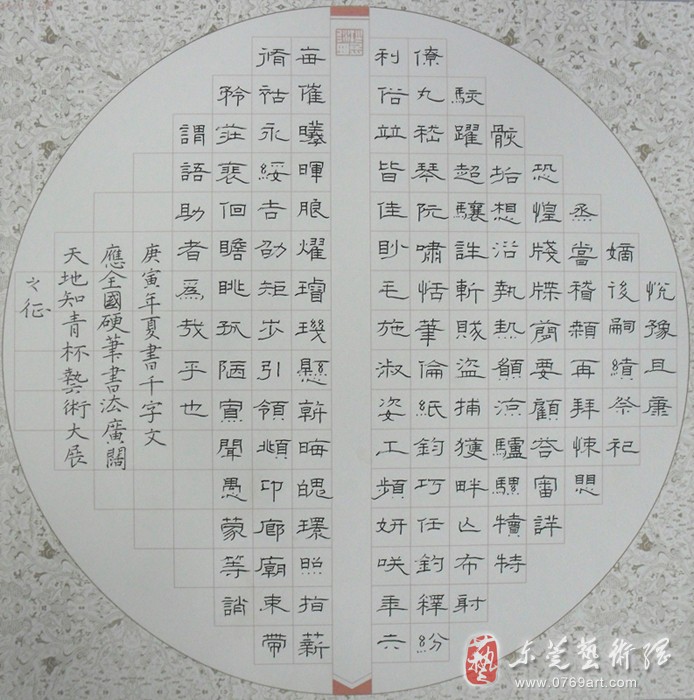 悅豫且康
嫡後嗣績祭祀
烝嘗稽顙再拜悚愳
恐惶牋牒簡要顧答審詳
骸垢想浴執熱願涼驢騾犢特
駭躍超驤誅斬賊盜捕獲畔亡布射
僚丸嵇琴阮嘯恬筆倫紙鈞巧任釣釋紛
利俗竝皆佳眇毛施淑姿工頻妍咲年矢
每催曦暉朗耀璿璣懸斡晦魄環照指薪
脩祜永綏吉劭矩步引領俯仰廊廟束帶
矜莊裵徊瞻眺孤陋寡聞愚蒙等誚
謂語助者焉哉乎也
庚寅年夏書千字文
應全國硬筆書法廣闊
天地知青杯藝術大展
之征
东莞艺术网
www.0769art.com